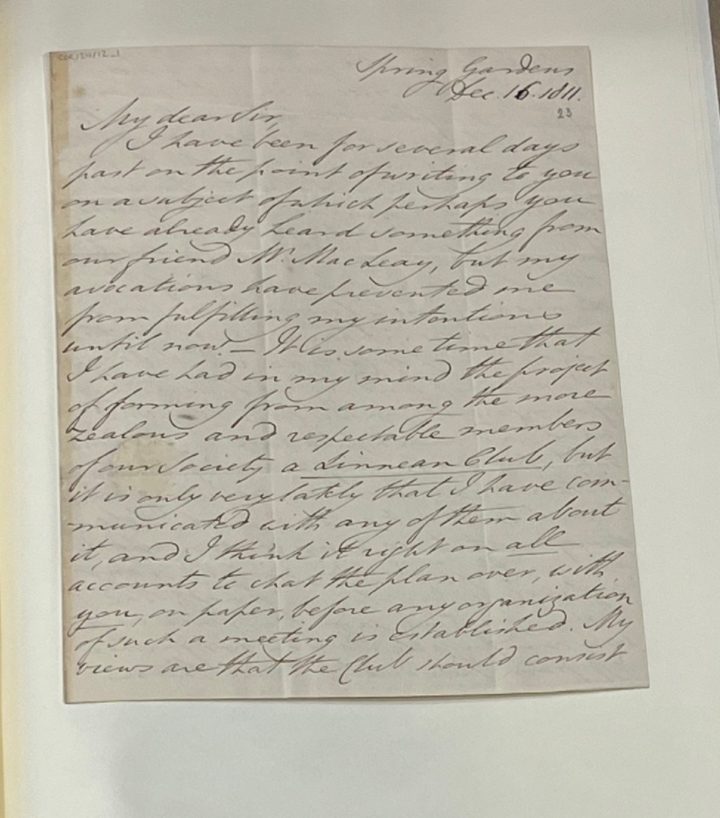 Spring Gardens
Dec. 16. 1811.
23
My dear Sir,
I have been for several days
past on the point of writing to you
on a subject of which perhaps you
have already heard something from
our friend Mr. MacLeay, but my
avocations have prevented me
from fulfilling my intentions
until now. – It is some time that
I have had in my mind the project
of forming from among the more
zealous and respectable members
of our Society a Linnean Club, but
it is only very lately that I have com-
-municated with any of them about
it, and I think it right on all
accounts to chat the plan over, with
you, on paper, before any organization
of such a meeting is established. My
views are that the Club should consist